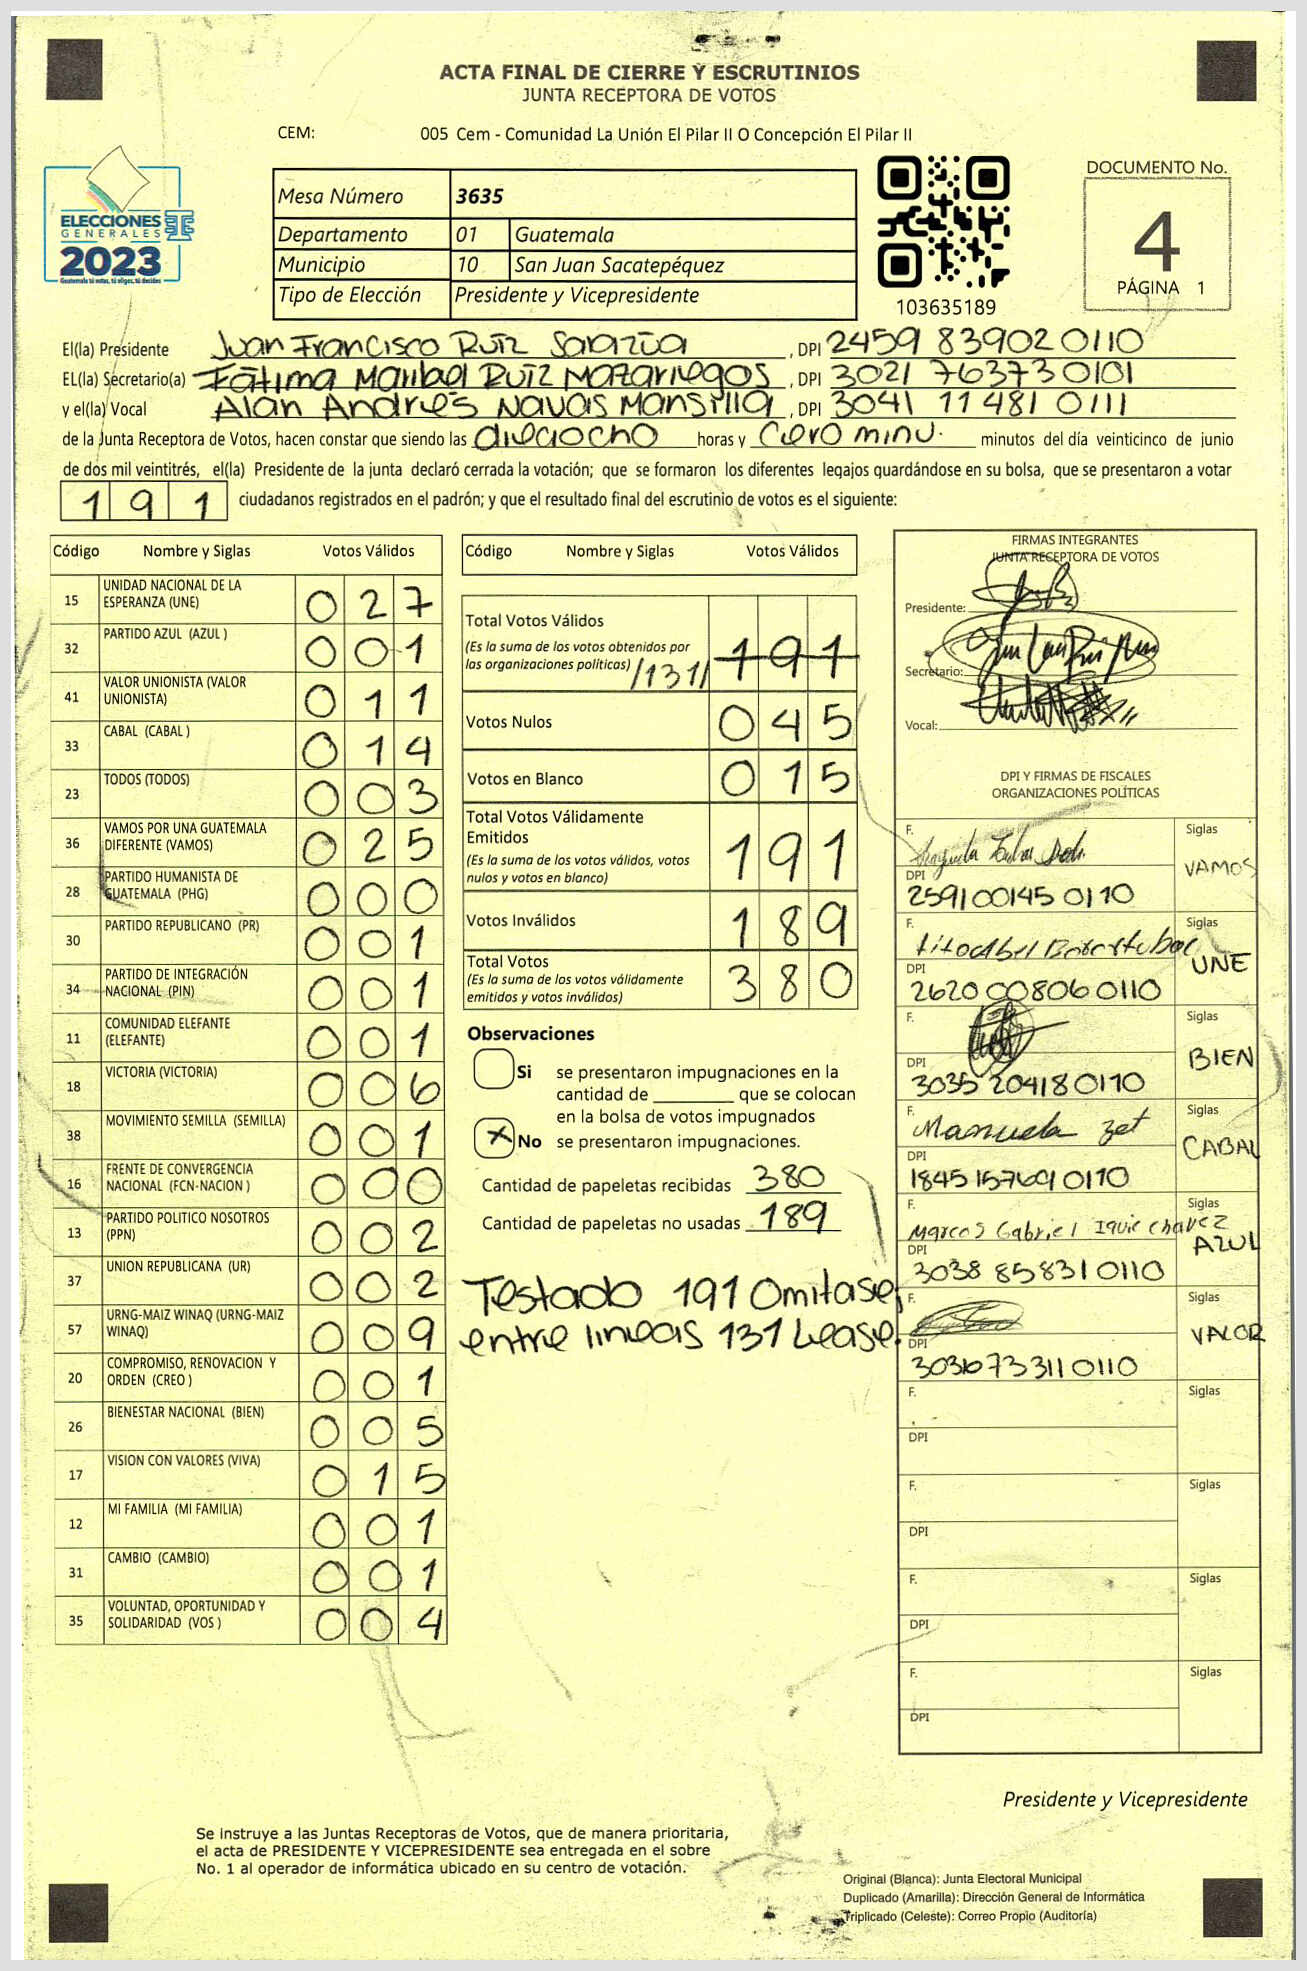 ACTA FINAL DE CIERRE Y ESCRUTINIOS
JUNTA RECEPTORA DE VOTOS
CEM: 005 Cem - Comunidad La Unión El Pilar II O Concepción El Pilar II
ELECCIONES
GENERALES
2023
Guatemala tú votas, tú eliges, tú decides
Mesa Número 3635
Departamento 01 Guatemala
Municipio 10 San Juan Sacatepéquez
Tipo de Elección Presidente y Vicepresidente
103635189
DOCUMENTO No.
4
PÁGINA 1
El(la) Presidente Juan Francisco Ruiz Sarazúa, DPI 2459 83902 0110
EL(la) Secretario(a) Fátima Maribel Ruiz Mazariegos, DPI 3021 76373 0101
y el(la) Vocal Alan Andrés Navas Mansilla, DPI 3041 11481 0111
de la Junta Receptora de Votos, hacen constar que siendo las dieciocho horas y cero minu. minutos del día veinticinco de junio
de dos mil veintitrés, el(la) Presidente de la junta declaró cerrada la votación; que se formaron los diferentes legajos guardándose en su bolsa, que se presentaron a votar
191 ciudadanos registrados en el padrón; y que el resultado final del escrutinio de votos es el siguiente:
Código Nombre y Siglas Votos Válidos
15 UNIDAD NACIONAL DE LA ESPERANZA (UNE) 027
32 PARTIDO AZUL (AZUL ) 001
41 VALOR UNIONISTA (VALOR UNIONISTA) 011
33 CABAL (CABAL ) 014
23 TODOS (TODOS) 003
36 VAMOS POR UNA GUATEMALA DIFERENTE (VAMOS) 025
28 PARTIDO HUMANISTA DE GUATEMALA (PHG) 000
30 PARTIDO REPUBLICANO (PR) 001
34 PARTIDO DE INTEGRACIÓN NACIONAL (PIN) 001
11 COMUNIDAD ELEFANTE (ELEFANTE) 001
18 VICTORIA (VICTORIA) 006
38 MOVIMIENTO SEMILLA (SEMILLA) 001
16 FRENTE DE CONVERGENCIA NACIONAL (FCN-NACION ) 000
13 PARTIDO POLITICO NOSOTROS (PPN) 002
37 UNION REPUBLICANA (UR) 002
57 URNG-MAIZ WINAQ (URNG-MAIZ WINAQ) 009
20 COMPROMISO, RENOVACION Y ORDEN (CREO ) 001
26 BIENESTAR NACIONAL (BIEN) 005
17 VISION CON VALORES (VIVA) 015
12 MI FAMILIA (MI FAMILIA) 001
31 CAMBIO (CAMBIO) 001
35 VOLUNTAD, OPORTUNIDAD Y SOLIDARIDAD (VOS ) 004
Código Nombre y Siglas Votos Válidos
Total Votos Válidos
(Es la suma de los votos obtenidos por
las organizaciones políticas) /131/ 191
Votos Nulos 045
Votos en Blanco 015
Total Votos Válidamente
Emitidos 191
(Es la suma de los votos válidos, votos
nulos y votos en blanco)
Votos Inválidos 189
Total Votos
(Es la suma de los votos válidamente 380
emitidos y votos inválidos)
Observaciones
Si se presentaron impugnaciones en la
cantidad de ________ que se colocan
en la bolsa de votos impugnados
X No se presentaron impugnaciones.
Cantidad de papeletas recibidas 380
Cantidad de papeletas no usadas 189
Testado 191 Omitase,
entre lineas 131 Lease.
FIRMAS INTEGRANTES
JUNTA RECEPTORA DE VOTOS
Presidente:
Secretario:
Vocal:
DPI Y FIRMAS DE FISCALES
ORGANIZACIONES POLÍTICAS
F. Siglas
VAMOS
DPI
2591 00145 0110
F. Siglas
UNE
DPI
2620 00806 0110
F. Siglas
BIEN
DPI
3035 20418 0110
F. Manuela Zet Siglas
CABAL
DPI
1845 15769 0110
F. Marcos Gabriel Chavez Siglas
AZUL
DPI
3038 85831 0110
F. Siglas
VALOR
DPI
3036 73311 0110
F. Siglas
DPI
F. Siglas
DPI
F. Siglas
DPI
F. Siglas
DPI
Presidente y Vicepresidente
Se instruye a las Juntas Receptoras de Votos, que de manera prioritaria,
el acta de PRESIDENTE Y VICEPRESIDENTE sea entregada en el sobre
No. 1 al operador de informática ubicado en su centro de votación.
Original (Blanca): Junta Electoral Municipal
Duplicado (Amarilla): Dirección General de Informática
Triplicado (Celeste): Correo Propio (Auditoría)